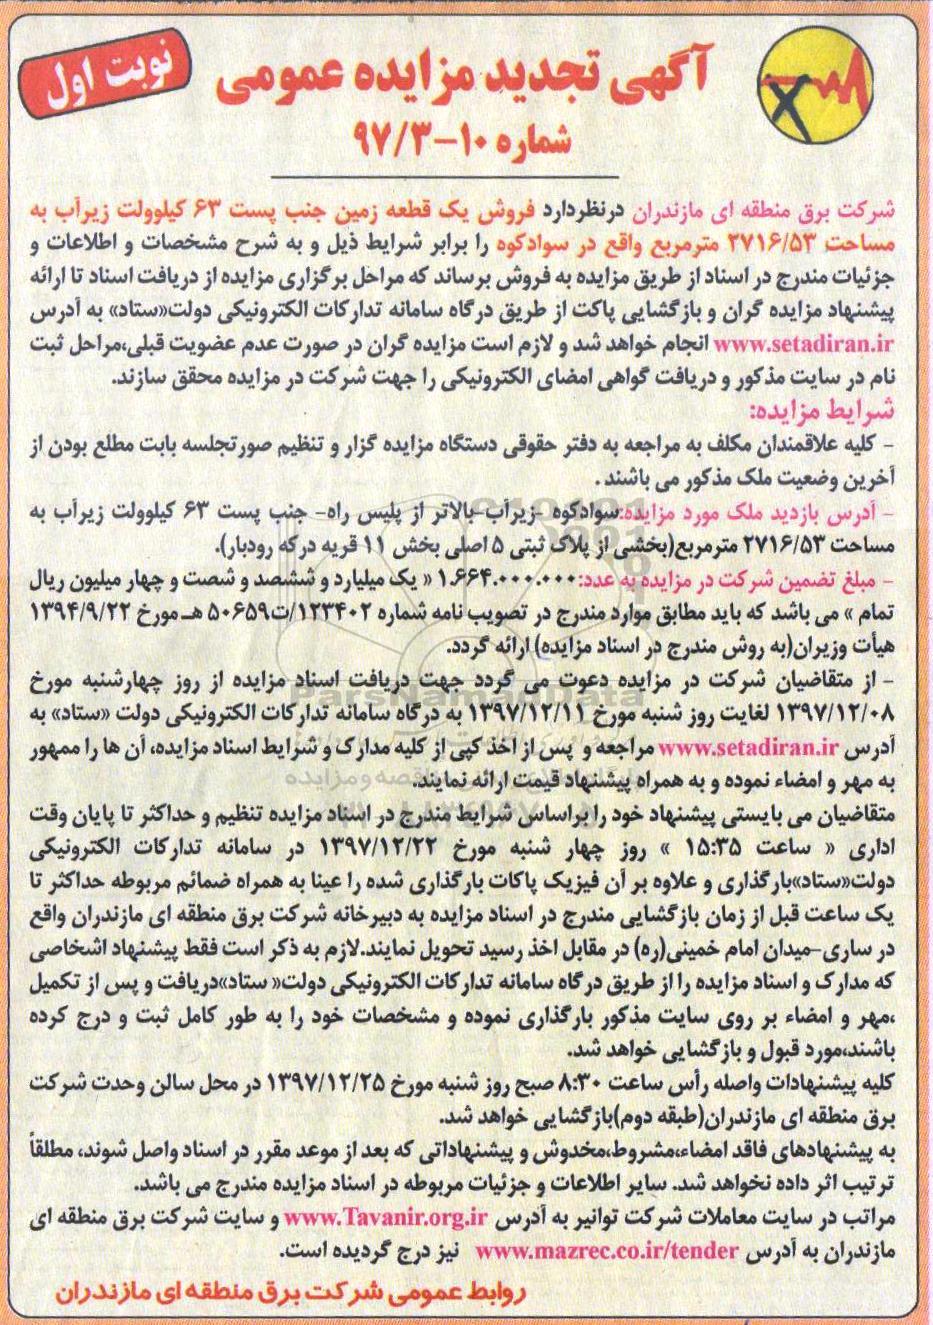 نوبت اول
آگهی تجدید مزایده عمومی
شماره ۱۰-۹۷/۳
شرکت برق منطقه ای مازندران درنظردارد فروش یک قطعه زمین جنب پست ۶۳ کیلوولت زیرآب به
مساحت ۲۷۱۶/۵۳ مترمربع واقع در سوادکوه را برابر شرایط ذیل و به شرح مشخصات و اطلاعات و
جزئیات مندرج در اسناد از طریق مزایده به فروش برساند که مراحل برگزاری مزایده از دریافت اسناد تا ارائه
پیشنهاد مزایده گران و بازگشایی پاکت از طریق درگاه سامانه تدارکات الکترونیکی دولت«ستاد» به آدرس
www.setadiran.ir انجام خواهد شد و لازم است مزایده گران در صورت عدم عضویت قبلی،مراحل ثبت
نام در سایت مذکور و دریافت گواهی امضای الکترونیکی را جهت شرکت در مزایده محقق سازند.
شرایط مزایده:
- کلیه علاقمندان مکلف به مراجعه به دفتر حقوقی دستگاه مزایده گزار و تنظیم صورتجلسه بابت مطلع بودن از
آخرین وضعیت ملک مذکور می باشند.
- آدرس بازدید ملک مورد مزایده:سوادکوه -زیرآب-بالاتر از پلیس راه- جنب پست ۶۳ کیلوولت زیرآب به
مساحت ۲۷۱۶/۵۳ مترمربع(بخشی از پلاک ثبتی ۵ اصلی بخش ۱۱ قریه درکه رودبار).
- مبلغ تضمین شرکت در مزایده به عدد:۱.۶۶۴.۰۰۰.۰۰۰ « یک میلیارد و ششصد و شصت و چهار میلیون ریال
تمام » می باشد که باید مطابق موارد مندرج در تصویب نامه شماره ۱۲۳۴۰۲/ت۵۰۶۵۹ هـ مورخ ۱۳۹۴/۹/۲۲
هیأت وزیران(به روش مندرج در اسناد مزایده) ارائه گردد.
- از متقاضیان شرکت در مزایده دعوت می گردد جهت دریافت اسناد مزایده از روز چهارشنبه مورخ
۱۳۹۷/۱۲/۰۸ لغایت روز شنبه مورخ ۱۳۹۷/۱۲/۱۱ به درگاه سامانه تدارکات الکترونیکی دولت «ستاد» به
آدرس www.setadiran.ir مراجعه و پس از اخذ کپی از کلیه مدارک و شرایط اسناد مزایده، آن ها را ممهور
به مهر و امضاء نموده و به همراه پیشنهاد قیمت ارائه نمایند.
متقاضیان می بایستی پیشنهاد خود را براساس شرایط مندرج در اسناد مزایده تنظیم و حداکثر تا پایان وقت
اداری « ساعت ۱۵:۳۵ » روز چهار شنبه مورخ ۱۳۹۷/۱۲/۲۲ در سامانه تدارکات الکترونیکی
دولت«ستاد»بارگذاری و علاوه بر آن فیزیک پاکات بارگذاری شده را عینا به همراه ضمائم مربوطه حداکثر تا
یک ساعت قبل از زمان بازگشایی مندرج در اسناد مزایده به دبیرخانه شرکت برق منطقه ای مازندران واقع
در ساری-میدان امام خمینی(ره) در مقابل اخذ رسید تحویل نمایند.لازم به ذکر است فقط پیشنهاد اشخاصی
که مدارک و اسناد مزایده را از طریق درگاه سامانه تدارکات الکترونیکی دولت« ستاد»دریافت و پس از تکمیل
،مهر و امضاء بر روی سایت مذکور بارگذاری نموده و مشخصات خود را به طور کامل ثبت و درج کرده
باشند،مورد قبول و بازگشایی خواهد شد.
کلیه پیشنهادات واصله رأس ساعت ۸:۳۰ صبح روز شنبه مورخ ۱۳۹۷/۱۲/۲۵ در محل سالن وحدت شرکت
برق منطقه ای مازندران(طبقه دوم)بازگشایی خواهد شد.
به پیشنهادهای فاقد امضاء،مشروط،مخدوش و پیشنهاداتی که بعد از موعد مقرر در اسناد واصل شوند، مطلقاً
ترتیب اثر داده نخواهد شد. سایر اطلاعات و جزئیات مربوطه در اسناد مزایده مندرج می باشد.
مراتب در سایت معاملات شرکت توانیر به آدرس www.Tavanir.org.ir و سایت شرکت برق منطقه ای
مازندران به آدرس www.mazrec.co.ir/tender نیز درج گردیده است.
روابط عمومی شرکت برق منطقه ای مازندران
ParsNamadData